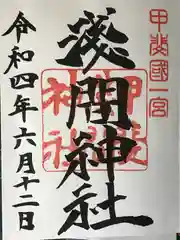 甲斐國一宮
浅間神社
令和四年六月十二日